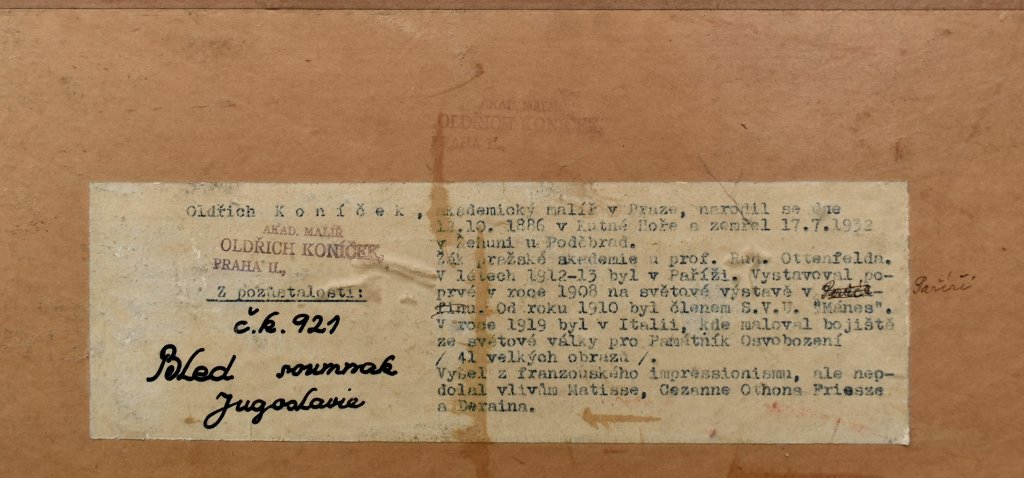 AKAD. MALÍŘ
OLDŘICH KONÍČEK,
PRAHA II.,
Oldřich Koníček, akademický malíř v Praze, narodil se dne
12.10. 1886 v Kutné Hoře a zemřel 17.7.1932
v Žehuni u Poděbrad.
Žák pražské akademie u prof. Rud. Ottenfelda.
V létech 1912-13 byl v Paříži. Vystavoval po-
prvé v roce 1908 na světové výstavě v
Paříži
finu. Od roku 1910 byl členem S.V.U. "Mánes".
V roce 1919 byl v Italii, kde maloval bojiště
ze světové války pro Památník Osvobození
/ 41 velkých obrazů /.
Vyšel z franzouského impressionismu, ale nep-
dolal vlivům Matisse, Cezanne Othona Friesze
a Deraina.
AKAD. MALÍŘ
OLDŘICH KONÍČEK,
PRAHA II.,
Z pozůstalosti:
č.k. 921
Bled soumrak
Jugoslavie